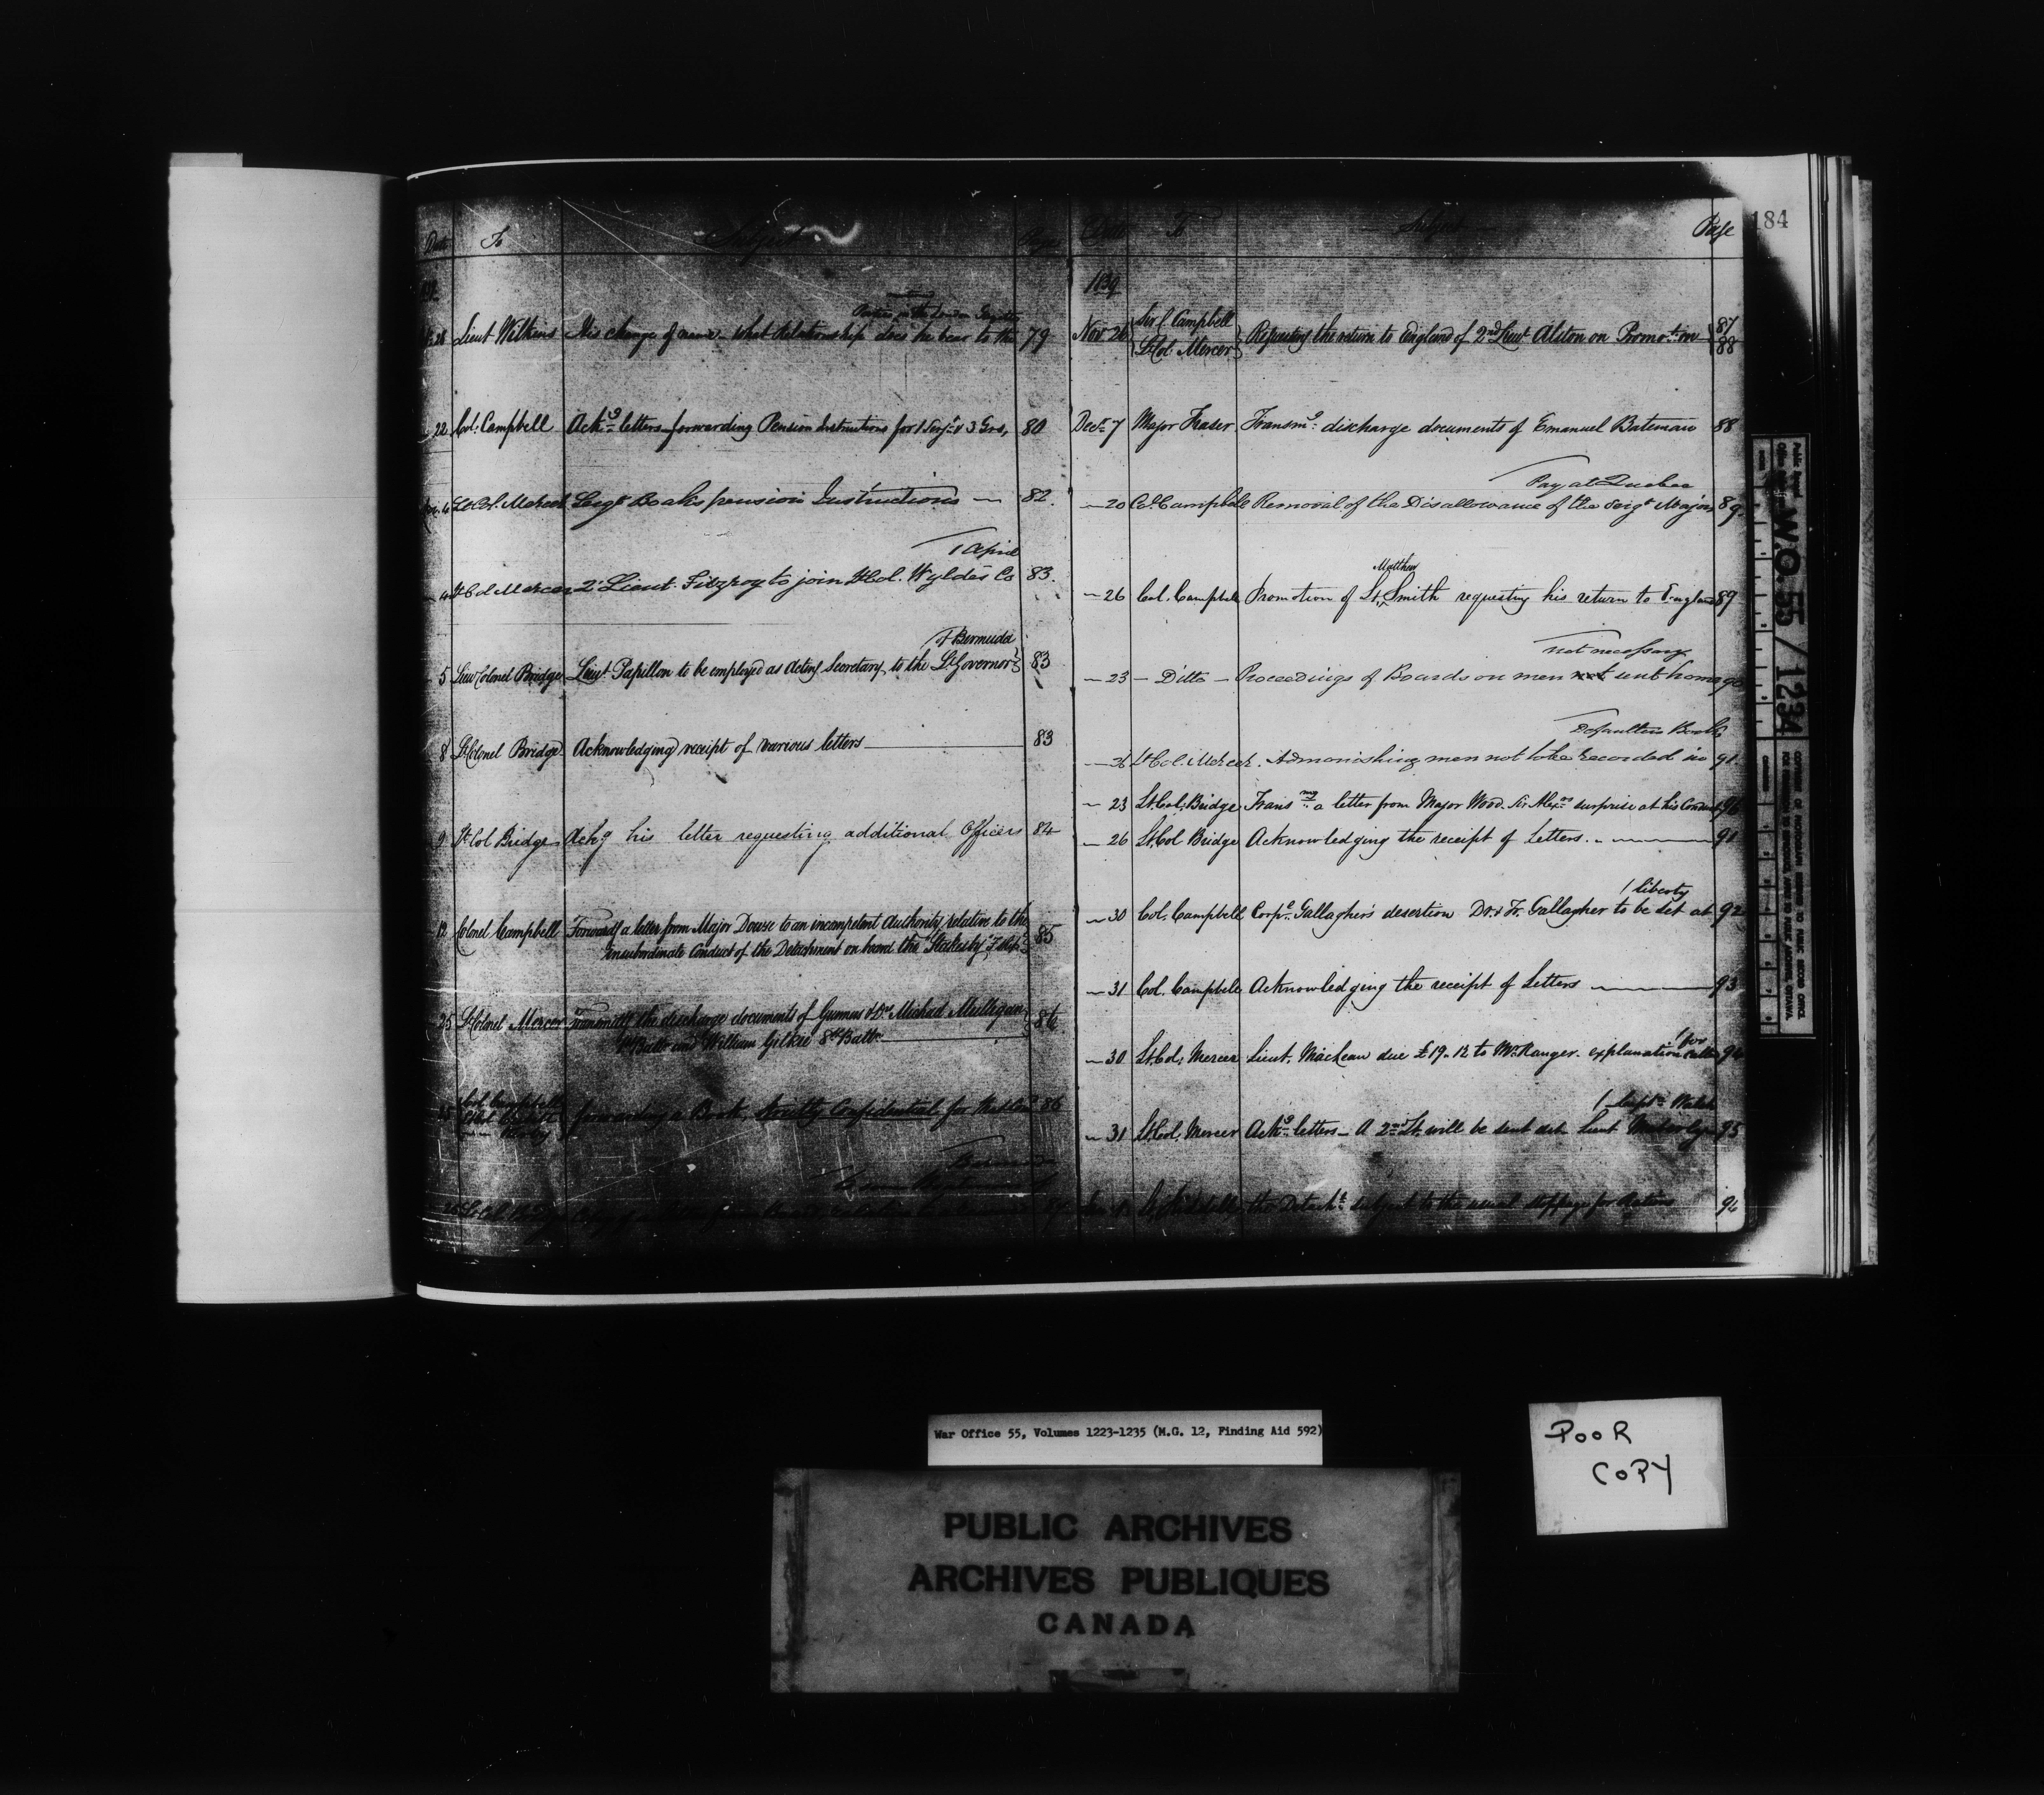 Date To Subject Page
Parties in the London Gazette
28 Lieut Wilkins His change of name - what relationship does he bear to the 79
22 Col: Campbell Ackg letters forwarding Pension Instructions for 1 Serjt & 3 Grs, 80
4 Lt Col. Mercer Sergt Boaks pension Instructions — 82.
1 April
4 Lt Col Mercer 2d Lieut. Fitzroy to join Lt Col. Wyldes Co 83.
of Bermuda
5 Lieut Colonel Bridge Lieut Papillon to be employed as acting Secretary to the Lt Governor 83
8 Lt Colonel Bridge Acknowledging receipt of various letters 83
9 Lt Col Bridge Ackg his letter requesting additional Officers 84
12 Colonel Campbell Forwards a letter from Major Dowse to an incompetent Authority relative to the
insubordinate Conduct of the Detachment on board the "Stakesby" 85
25 Lt Colonel Mercer Transmitting the discharge documents of Gunners & Drs Michael Mulligan
Battn and William Gilkie 8th Battn 86
25 Col Campbell forwarding a Book Strictly Confidential for 86
87
Date To Subject Page
184
1839
Nov 26 Sir C Campbell
Lt Col Mercer Requesting the return to England of 2nd Lieut Alston on Promotn 87
88
Decr 7 Major Fraser Transmg discharge documents of Emanuel Bateman 88
Pay at Quebec
—20 Col. Campbell Removal of the Disallowance of the Sergt Majors 89.
Matthew
—26 Col. Campbell Promotion of Lt. Smith requesting his return to England 89
not necessary
—23 — Ditto — Proceedings of Boards on men not sent home 90
Defaulters Books
—26 Lt Col. Mercer. Admonishing men not to be recorded in 91
—23 Lt Col: Bridge Transmg a letter from Major Wood. Sir Alexrs surprise at his Conduct 96
—26 Lt. Col Bridge Acknowledging the receipt of Letters. 91
1 liberty
—30 Col. Campbell Corpl Gallagher's desertion Dr. & Fr. Gallagher to be set at 92
—31 Col. Campbell Acknowledging the receipt of Letters 93
for
—30 Lt Col; Mercer Lieut. Maclean due £19.12 to Mr Ranger. explanation called 94
1 Captn Walsh
—31 Lt. Col; Mercer Ackg letters— A 2nd Lt. will be sent Lieut 95
Jan the Detacht subject to the usual stoppage for Rations 96
W.O. 55 / 1234
55 1234
War Office 55, Volumes 1223-1235 (M.G. 12, Finding Aid 592)
POOR
COPY
PUBLIC ARCHIVES
ARCHIVES PUBLIQUES
CANADA